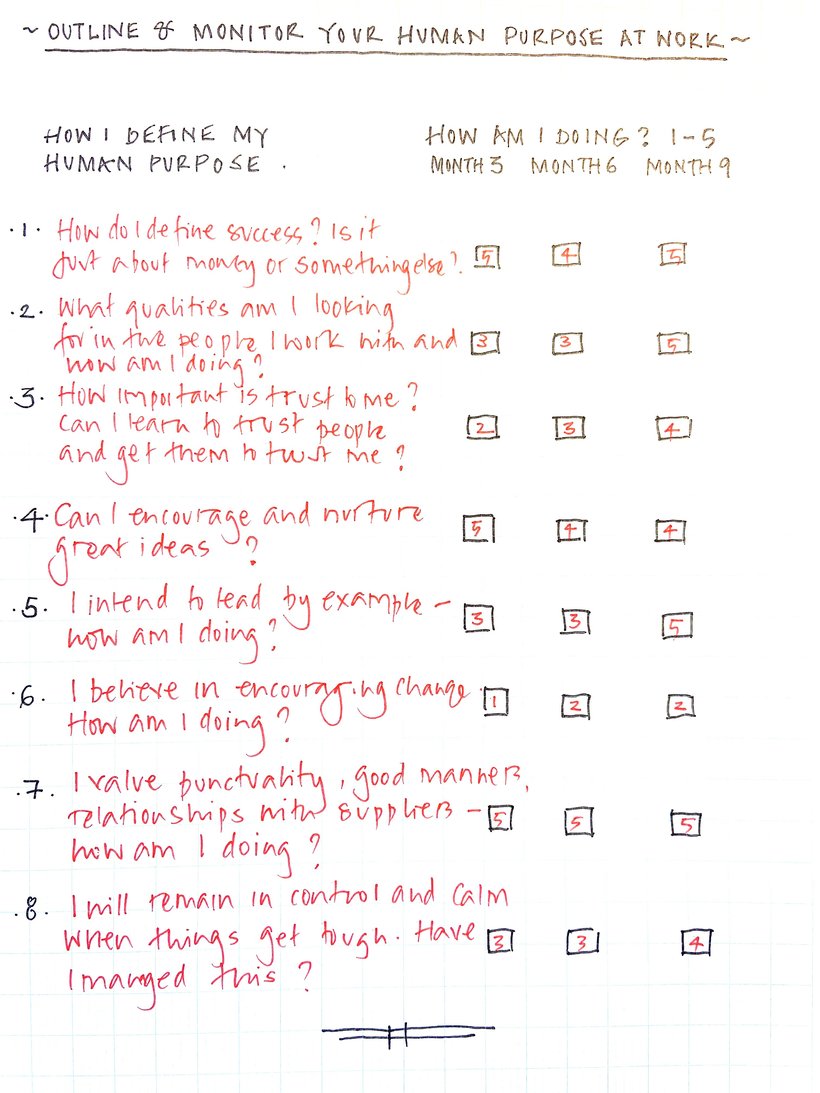 ~ OUTLINE & MONITOR YOUR HUMAN PURPOSE AT WORK ~
HOW I DEFINE MY HOW AM I DOING? 1-5
HUMAN PURPOSE . MONTH 3 MONTH 6 MONTH 9
.1. How do I define success? Is it
just about money or something else? 5 4 5
.2. What qualities am I looking
for in the people I work with and 3 3 5
how am I doing?
.3. How important is trust to me?
Can I learn to trust people 2 3 4
and get them to trust me?
.4. Can I encourage and nurture 5 4 4
great ideas ?
.5. I intend to lead by example – 3 3 5
how am I doing?
.6. I believe in encouraging change. 1 2 2
How am I doing?
.7. I value punctuality, good manners,
relationships with suppliers – 5 5 5
how am I doing?
.8. I will remain in control and calm
when things get tough. Have 3 3 4
I manged this ?